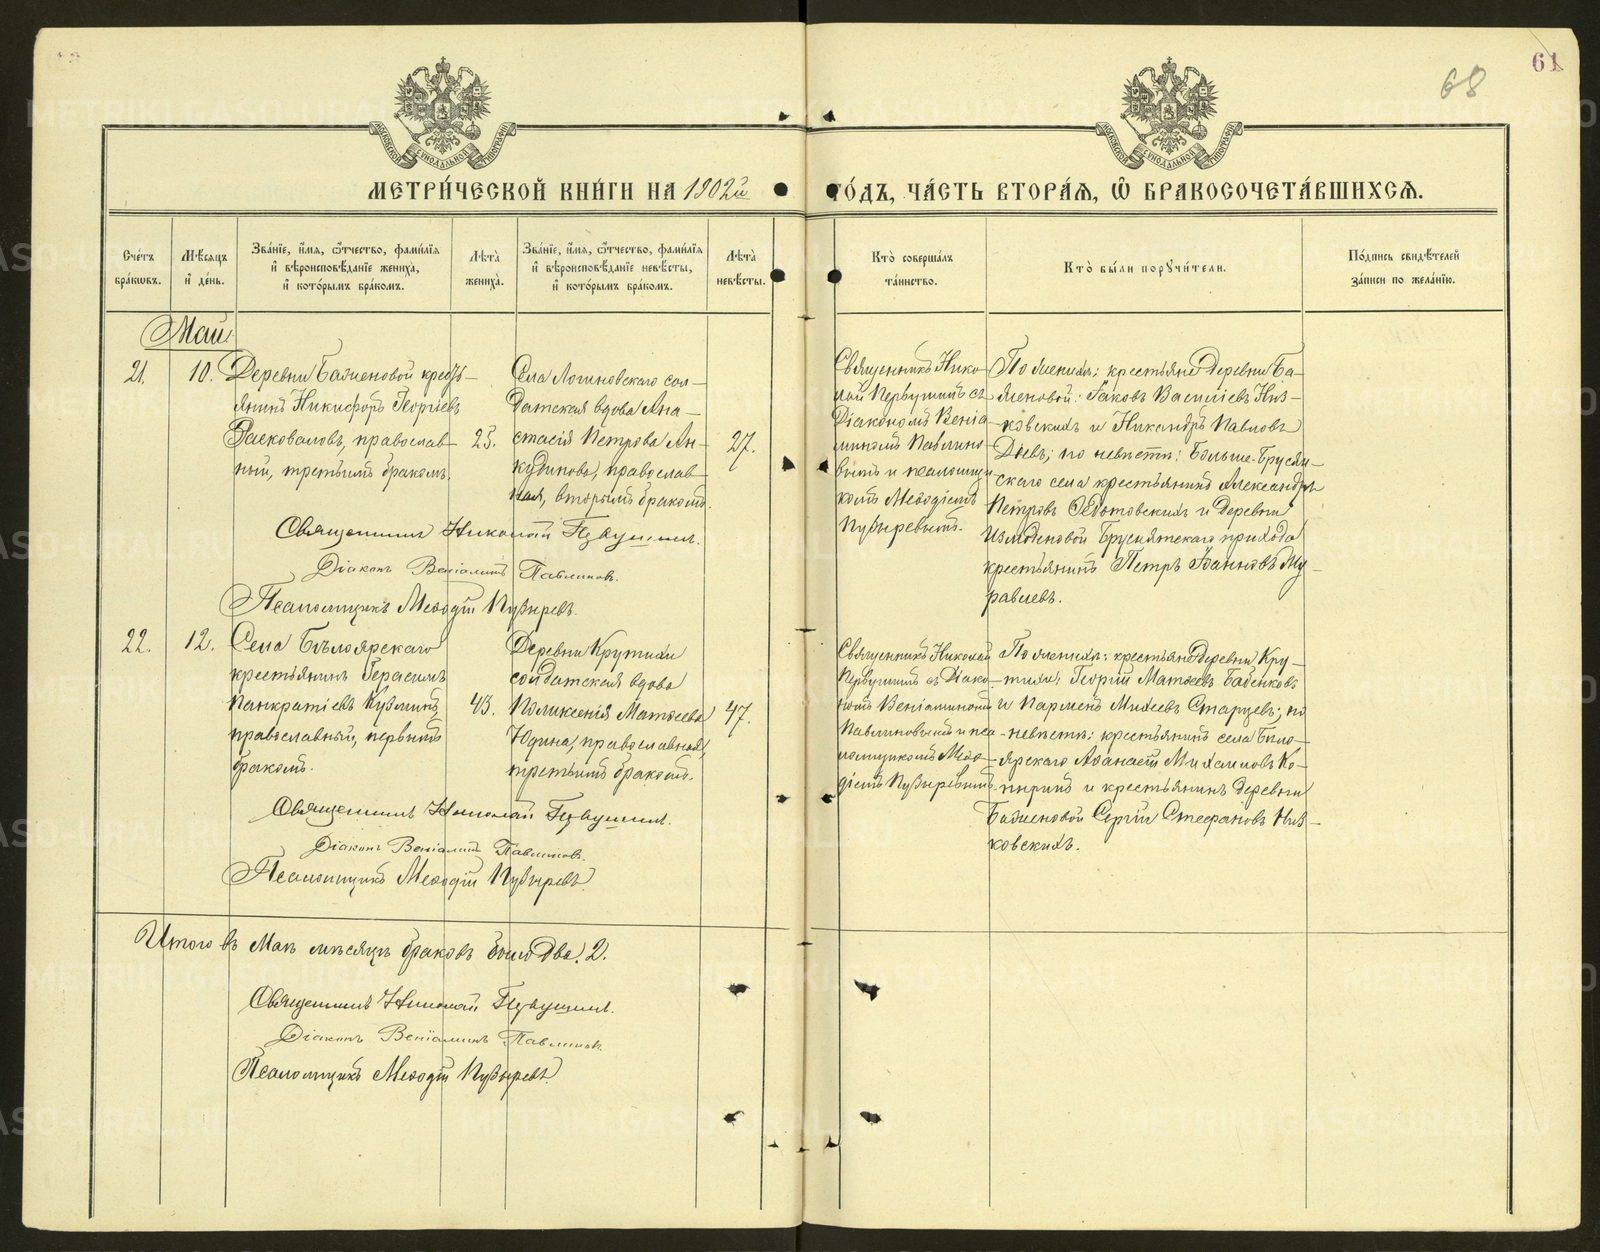 61
68
МЕТРИ́ЧЕСКОЙ КНИ́ГИ НА 1902й ГО́ДЪ, ЧА́СТЬ ВТОРА́Я, Ѿ БРАКОСОЧЕТА́ВШИХСЯ.
Сче́тъ бра́ковъ.
Мѣ́сяцъ и де́нь.
Зва́нїе, и́мя, ѻ҆́тчество, фами́лїя и вѣроисповѣ́данїе жениха̀, и кото́рымъ бра́комъ.
Лѣ́та жениха̀.
Зва́нїе, и́мя, ѻ҆́тчество, фами́лїя и вѣроисповѣ́данїе невѣ́сты, и кото́рымъ бра́комъ.
Лѣ́та невѣ́сты.
Кто̀ соверша́лъ та́инство.
Кто̀ бы́ли поручи́тели.
По́дпись свидѣ́телей за́писи по жела́нїю.
Май
21.
10.
Деревни Баженовой кресть-
янинъ Никифоръ Георгіевъ
православ-
ный, третьимъ бракомъ.
25.
Села Логиновскаго сол-
датская вдова Ана-
стасія Петрова Ан-
кудинова, православ-
ная, вторымъ бракомъ.
27.
Священникъ Нико-
лай Первушинъ съ
Діакономъ Веніа-
миномъ Павлино-
вымъ и псаломщи-
комъ Меѳодіемъ
Пузыревымъ.
По женихѣ: крестьяне Деревни Ба-
женовой: Іаковъ Василіевъ Низ-
ковскихъ и Никандръ Павловъ
по невѣстѣ: Больше-Брусян-
скаго села крестьянинъ Александръ
Петровъ Ѳедотовскихъ и Деревни
Измоденовой Бруснятскаго прихода
крестьянинъ Петръ Іоанновъ Му-
равлевъ.
Священникъ Николай Первушинъ.
Діаконъ Веніаминъ Павлиновъ.
Псаломщикъ Меѳодій Пузыревъ.
22.
12.
Села Бѣлоярскаго
крестьянинъ Герасимъ
Панкратіевъ Кузминъ,
православный, первымъ
бракомъ.
43.
Деревни Крутихи
солдатская вдова
Поликсенія Матѳеева
Юдина, православная,
третьимъ бракомъ.
47.
Священникъ Николай
Первушинъ съ Діако-
номъ Веніаминомъ
Павлиновымъ и пса-
ломщикомъ Меѳо-
діемъ Пузыревымъ.
По женихѣ: крестьяне Деревни Кру-
тихи: Георгій Матѳеевъ Бабенковъ
и Парменъ Михеевъ Старцевъ; по
невѣстѣ: крестьянинъ села Бѣло-
ярскаго Аѳанасій Михаиловъ Ко-
пыринъ и крестьянинъ Деревни
Баженовой Сергій Стефановъ Низ-
ковскихъ.
Священникъ Николай Первушинъ.
Діаконъ Веніаминъ Павлиновъ.
Псаломщикъ Меѳодій Пузыревъ.
Итого въ Маѣ мѣсяцѣ браковъ было два. 2.
Священникъ Николай Первушинъ.
Діаконъ Веніаминъ Павлиновъ.
Псаломщикъ Меѳодій Пузыревъ.